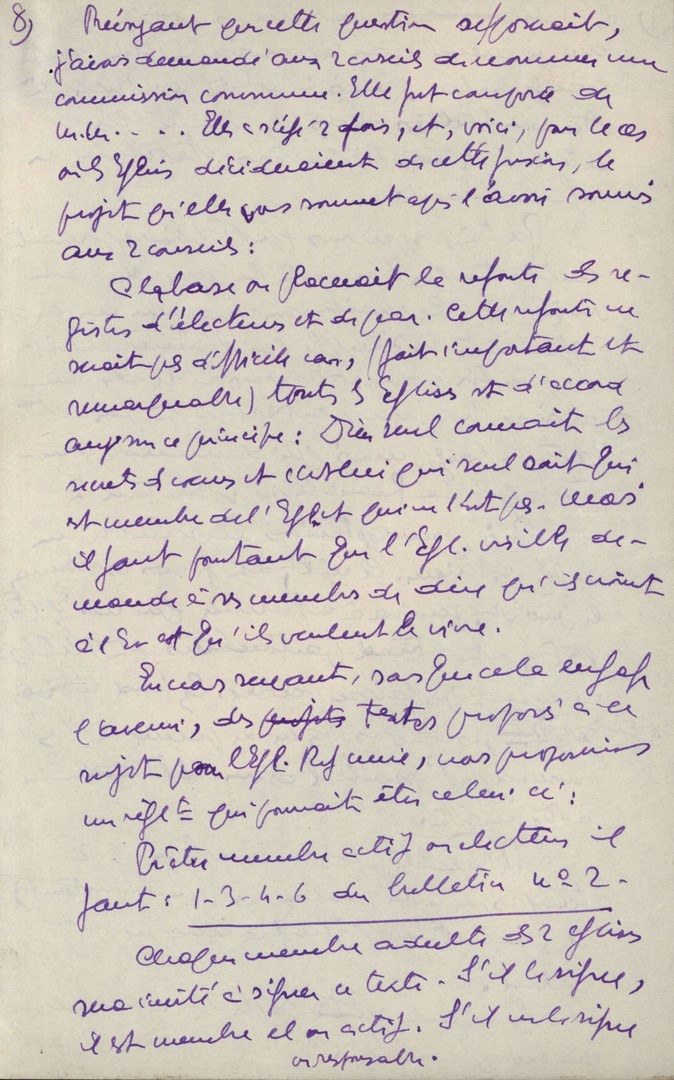 8) Prévoyant que cette question se posait,
j'avais demandé aux 2 conseils de nommer une
commission commune. Elle fut composée de
MM. . . . Elle a siégé 2 fois, et, voici, pour le cas
où les Eglises décideraient de cette fusion, le
projet qu'elle vous soumet après l'avoir soumis
aux 2 conseils :
A la base on placerait la refonte des re-
gistres d'électeurs et de par. Cette refonte ne
serait pas difficile car, (fait important et
remarquable) toutes les Eglises st d'accord
sur ce principe : Dieu seul connaît les
secrets des cœurs et c'est lui qui seul sait qui
est membre de l'Egl. et qui ne l'est pas. Mais
il faut pourtant que l'Egl. visible de-
mande à ses membres de dire qu'ils croient
à l'Ev et qu'ils veulent le vivre.
En nous servant, sans que cela engage
l'avenir, des projets textes proposés à ce
sujet pour l'Egl. Réf unie, nous proposerions
un règlt qui pourrait être celui-ci :
Pr être membre actif ou électeur il
faut : 1-3-4-6 du bulletin no 2.
Chaque membre adulte des 2 églises
sera invité à signer ce texte. S'il le signe,
il est membre él ou actif. S'il ne le signe
ou responsable.